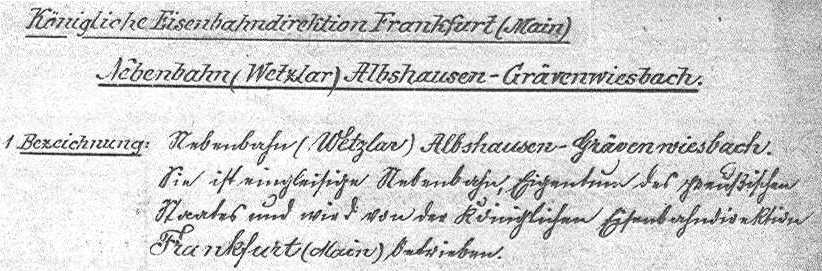 Königliche Eisenbahndirektion Frankfurt (Main)
Nebenbahn (Wetzlar) Albshausen-Grävenwiesbach.
1 Bezeichnung: Nebenbahn (Wetzlar) Albshausen-Grävenwiesbach.
Sie ist eingleisige Nebenbahn, Eigentum des preußischen
Staates und wird von der Königlichen Eisenbahndirektion
Frankfurt (Main) betrieben.